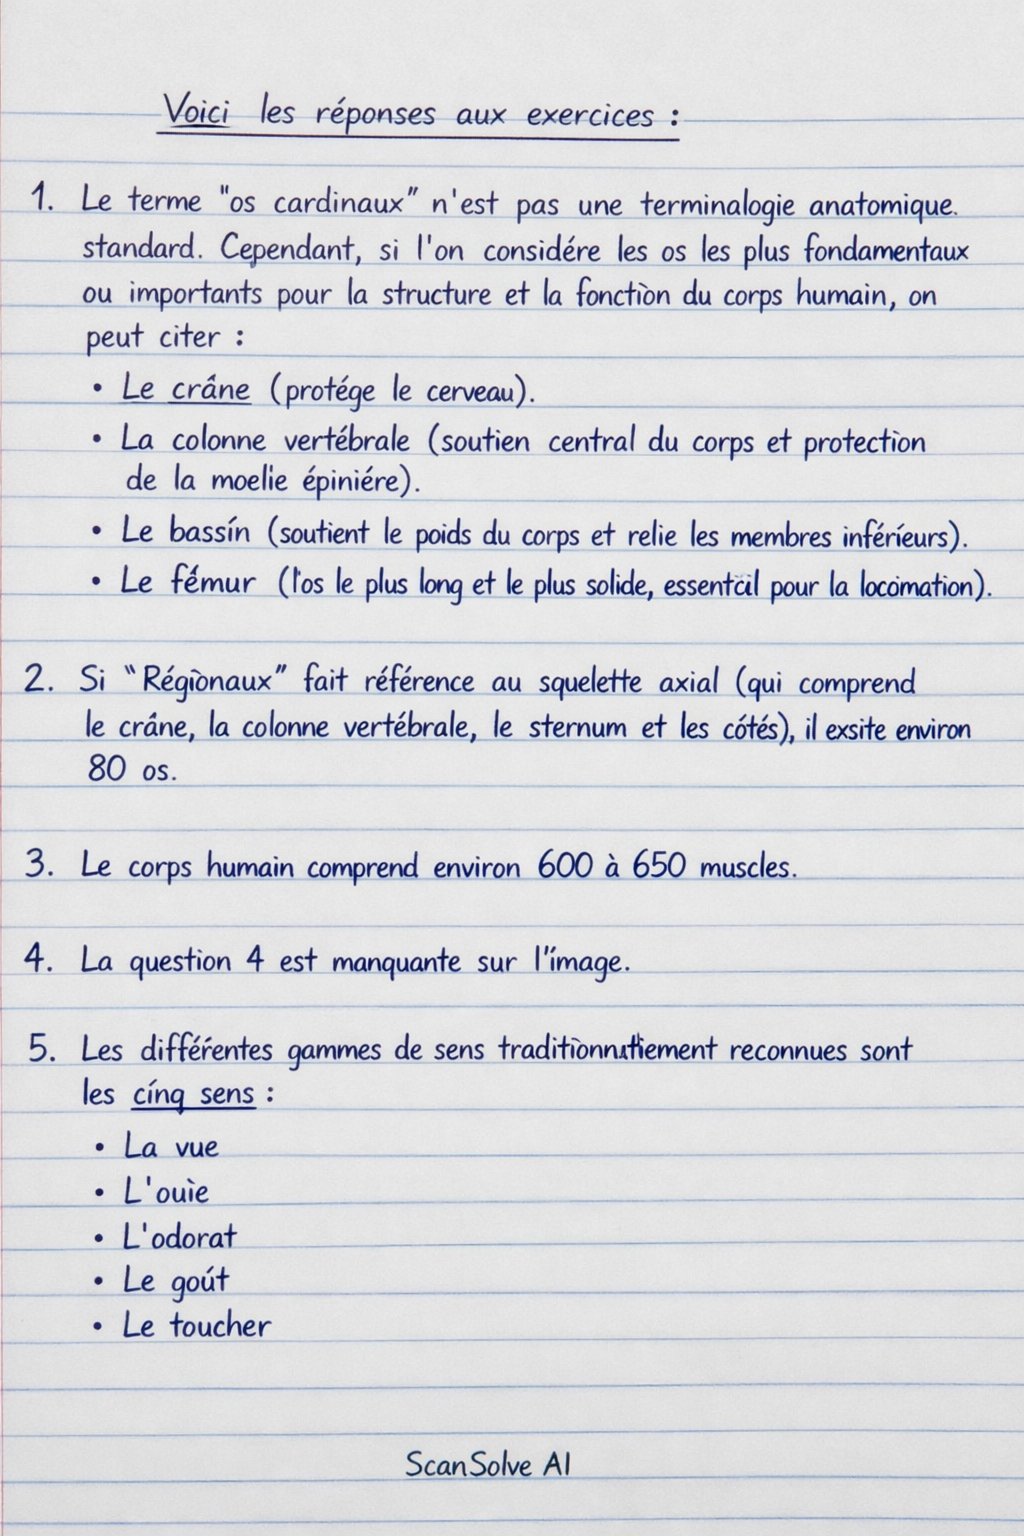 Voici les réponses aux exercices :
1. Le terme "os cardinaux" n'est pas une terminalogie anatomique.
standard. Cependant, si l'on considére les os les plus fondamentaux
ou importants pour la structure et la fonction du corps humain, on
peut citer :
• Le crâne (protége le cerveau).
• La colonne vertébrale (soutien central du corps et protection
de la moelie épiniére).
• Le bassín (soutient le poids du corps et relie les membres inférieurs).
• Le fémur (l'os le plus long et le plus solide, pour la locomation).
2. Si "Régionaux" fait référence au squelette axial (qui comprend
le crâne, la colonne vertébrale, le sternum et les cótés), il exsite environ
80 os.
3. Le corps humain comprend environ 600 à 650 muscles.
4. La question 4 est manquante sur l'image.
5. Les différentes gammes de sens reconnues sont
les cínq sens :
• La vue
• L'ouìe
• L'odorat
• Le goút
• Le toucher
ScanSolve AI